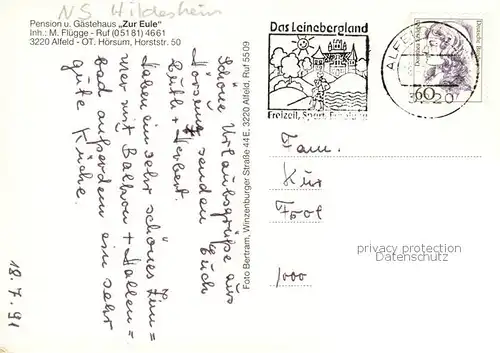 NS Hildesheim
Pension u. Gästehaus "Zur Eule"
Inh.: M. Flügge - Ruf (05181) 4661
3220 Alfeld - OT. Hörsum, Horststr. 50
Schöne Urlaubsgrüße aus
Hörsum senden Euch
Ruth + Herbert.
Haben ein sehr schönes Zim=
mer mit Balkon + Hallen=
bad außerdem eine sehr
gute Küche.
18.7.91
Foto Bertram, Winzenburger Straße 44E, 3220 Alfeld, Ruf 5509
Das Leinebergland
Freizeit, Sport, Erholung
ALFELD
60
Fam.
1000
privacy protection
Datenschutz